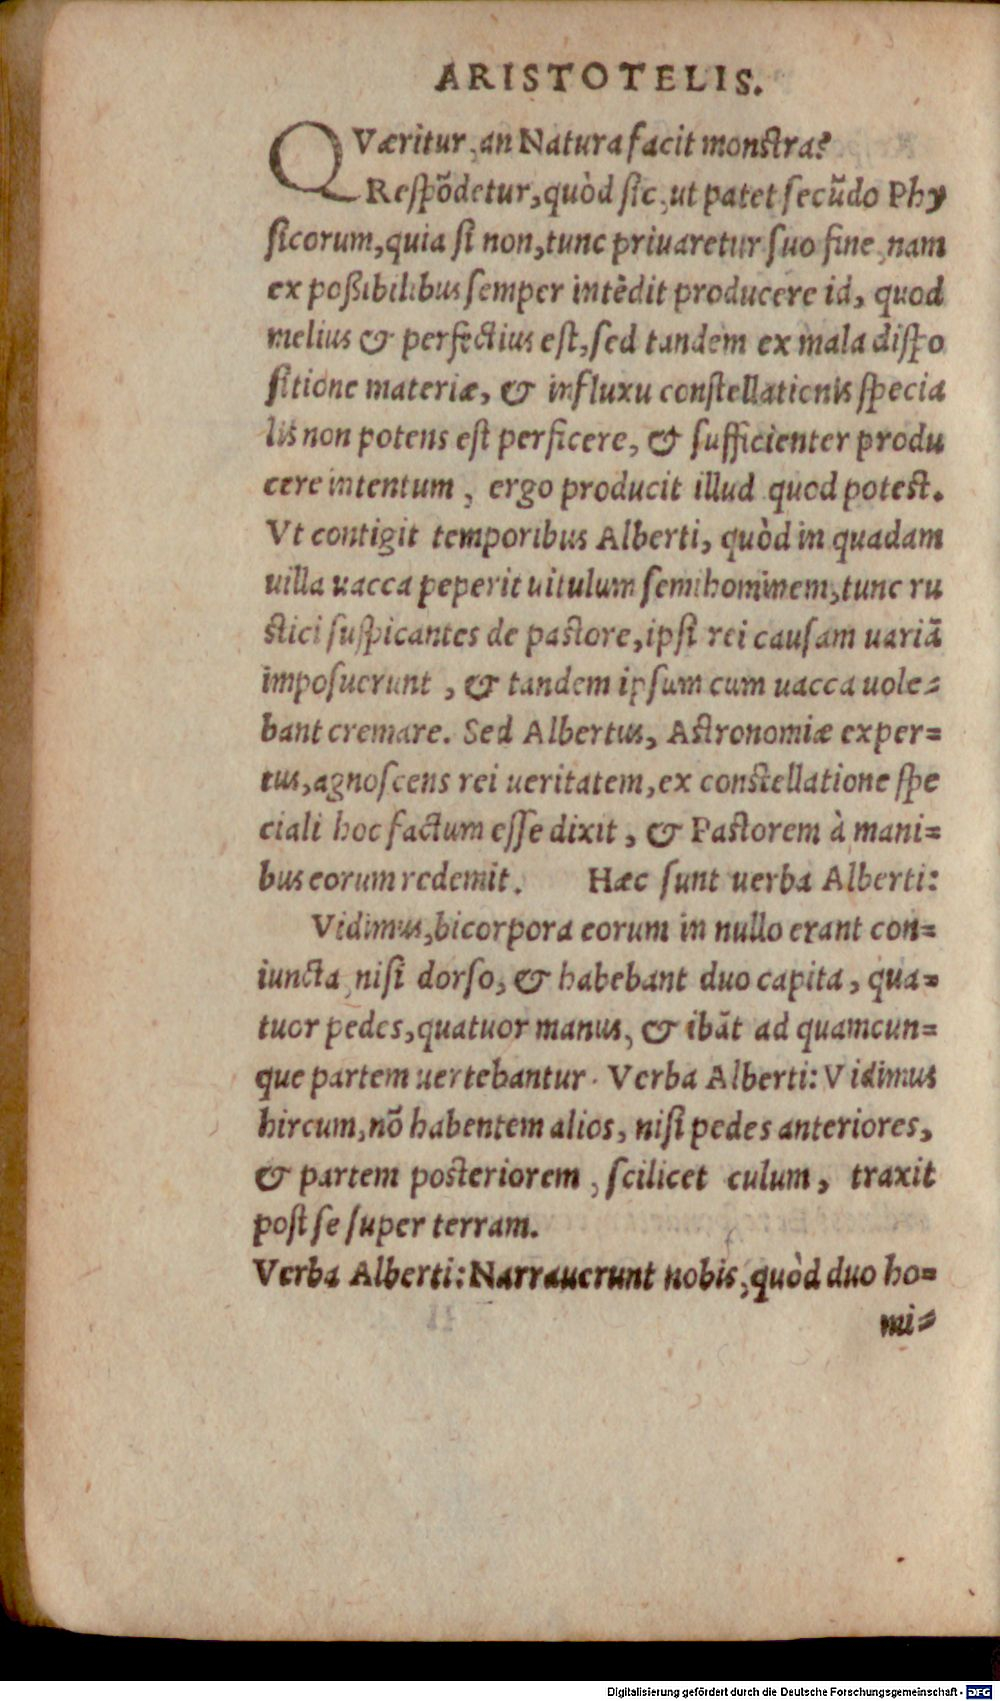 ARISTOTELIS.
QVæritur, an Natura facit monstra?
Respõdetur, quòd sic, ut patet secũdo Phy
sicorum, quia si non, tunc priuaretur suo fine, nam
ex poßibilibus semper intẽdit producere id, quod
melius & perfectius est, sed tandem ex mala dispo
sitione materiæ, & influxu constellationis specia
lis non potens est perficere, & sufficienter produ
cere intentum, ergo producit illud quod potest.
Vt contigit temporibus Alberti, quòd in quadam
uilla uacca peperit uitulum semihominem, tunc ru
stici suspicantes de pastore, ipsi rei causam uariã
imposuerunt, & tandem ipsum cum uacca uole=
bant cremare. Sed Albertus, Astronomiæ exper=
tus, agnoscens rei ueritatem, ex constellatione spe
ciali hoc factum esse dixit, & Pastorem à mani=
bus eorum redemit. Hæc sunt uerba Alberti:
Vidimus, bicorpora eorum in nullo erant con=
iuncta, nisi dorso, & habebant duo capita, qua=
tuor pedes, quatuor manus, & ibãt ad quamcun=
que partem uertebantur. Verba Alberti: Vidimus
hircum, nõ habentem alios, nisi pedes anteriores,
& partem posteriorem, scilicet culum, traxit
post se super terram.
Verba Alberti: Narrauerunt nobis, quòd duo ho=
mi=
Digitalisierung gefördert durch die Deutsche Forschungsgemeinschaft - DFG